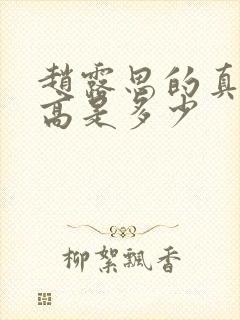 趙露思的真
高是多少
柳絮飄香